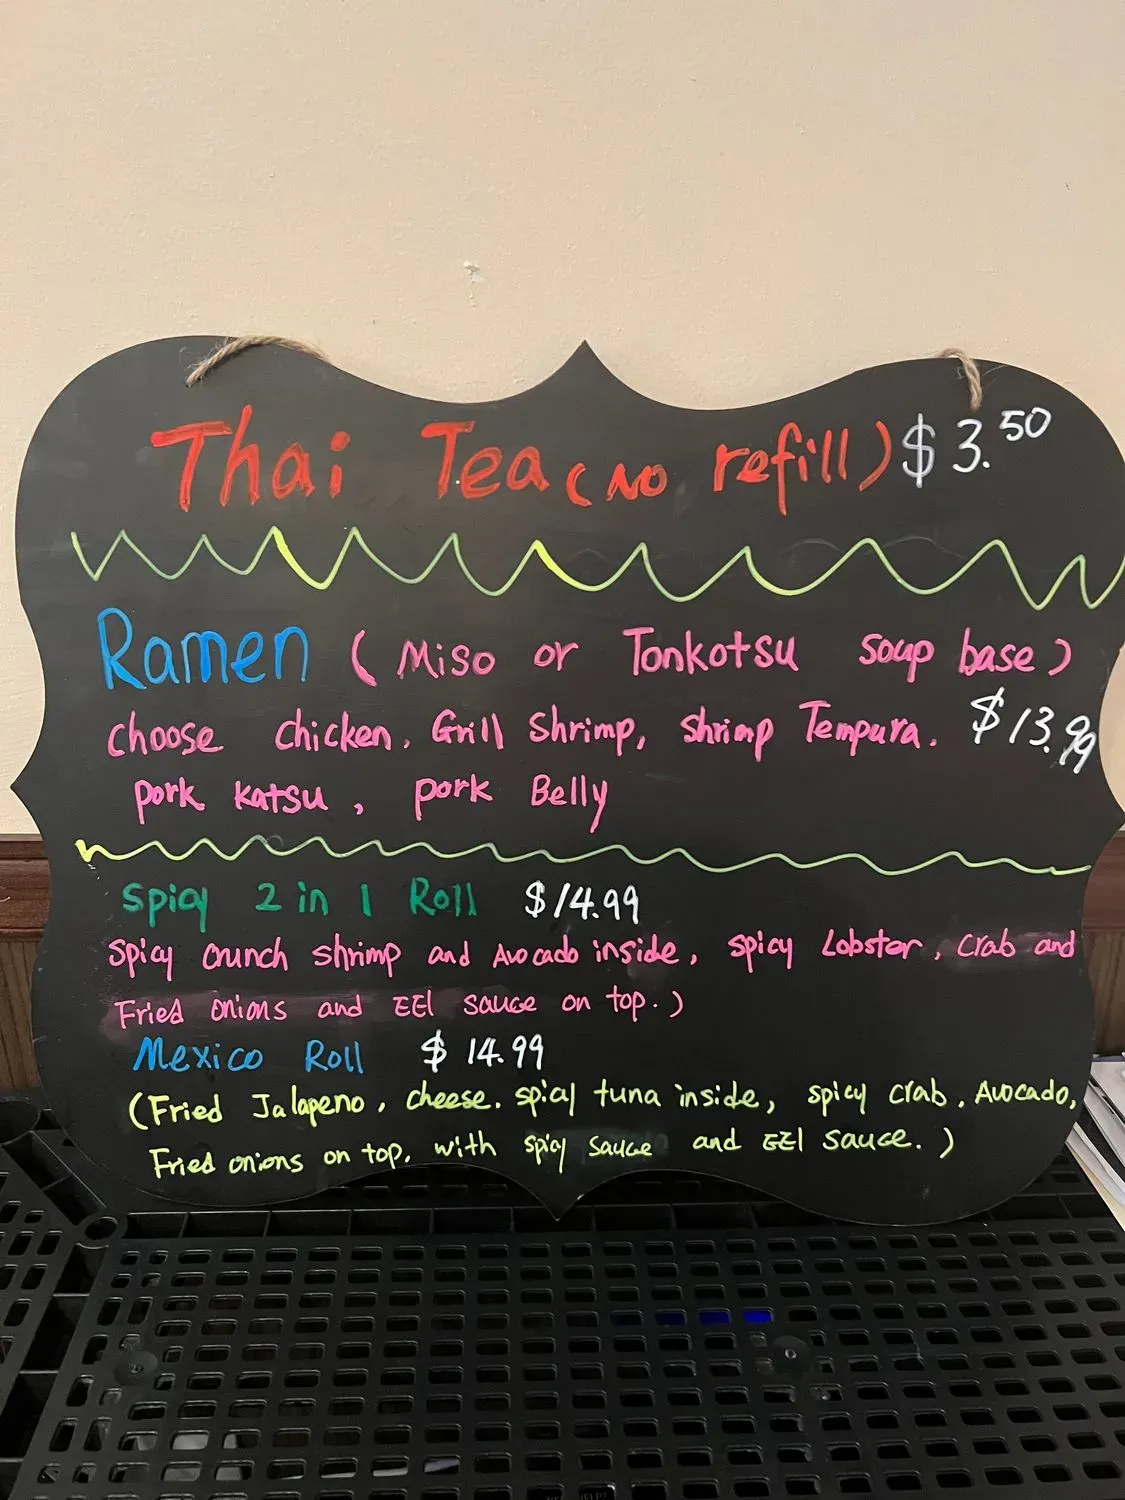 Thai Tea (No refill) $3.50
Ramen (Miso or Tonkotsu soup base)
choose chicken, Grill Shrimp, shrimp Tempura. $13.99
pork katsu, pork Belly
Spicy 2 in 1 Roll $14.99
Spicy crunch shrimp and Avocado inside, spicy Lobster, crab and
Fried onions and EEl sauce on top.)
Mexico Roll $14.99
(Fried Jalapeno, cheese. spicy tuna inside, spicy crab, Avocado,
Fried onions on top, with spicy sauce and EEl sauce.)